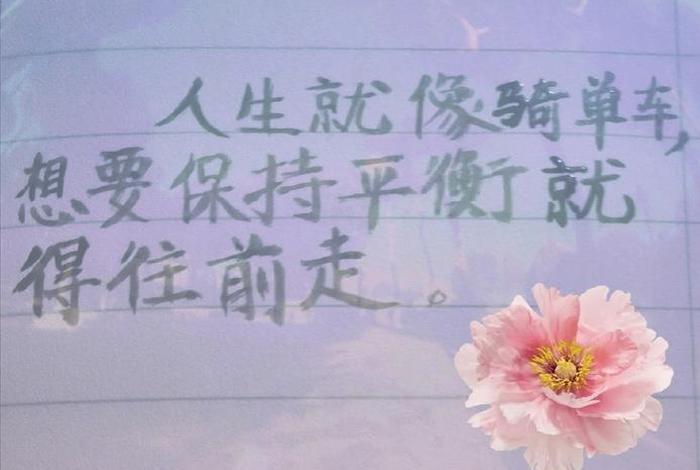 人生就像骑单车,
想要保持平衡就
得往前走。